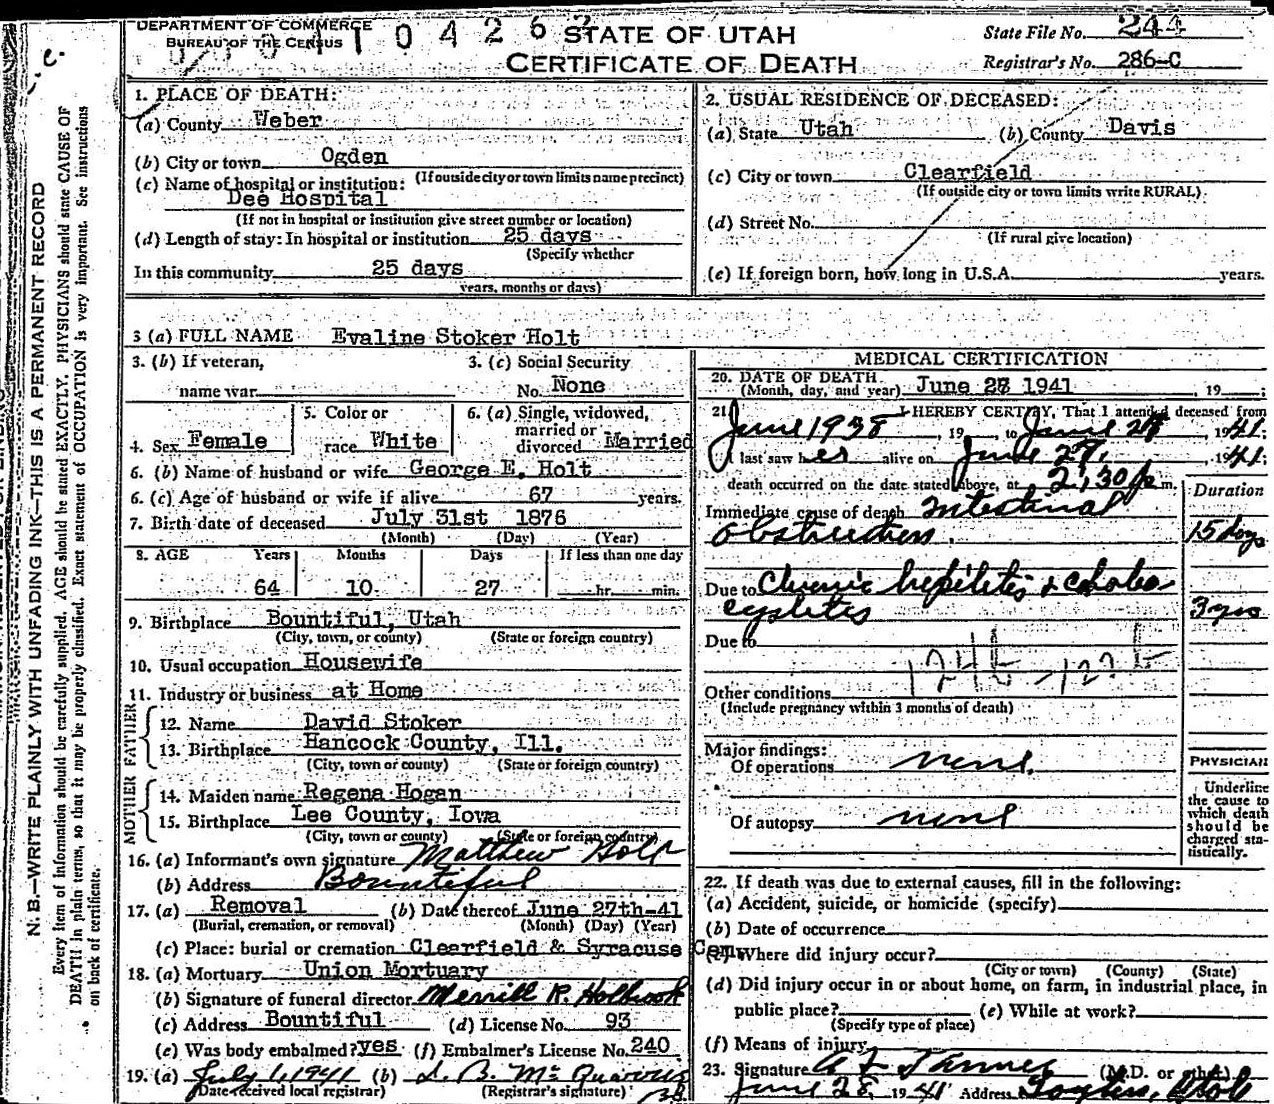 DEPARTMENT OF COMMERCE
BUREAU OF THE CENSUS
0 4 2 6
STATE OF UTAH
CERTIFICATE OF DEATH
State File No. 244
Registrar's No. 286-C
N. B.—WRITE PLAINLY WITH UNFADING INK—THIS IS A PERMANENT RECORD
Every item of information should be carefully supplied. AGE should be stated EXACTLY. PHYSICIANS should state CAUSE OF
DEATH in plain terms, so that it may be properly classified. Exact statement of OCCUPATION is very important. See instructions
on back of certificate.
1. PLACE OF DEATH:
(a) County Weber
(b) City or town Ogden
(If outside city or town limits name precinct)
(c) Name of hospital or institution:
Dee Hospital
(If not in hospital or institution give street number or location)
(d) Length of stay: In hospital or institution 25 days
(Specify whether
In this community 25 days
years, months or days)
2. USUAL RESIDENCE OF DECEASED:
(a) State Utah (b) County Davis
(c) City or town Clearfield
(If outside city or town limits write RURAL)
(d) Street No.
(If rural give location)
(e) If foreign born, how long in U.S.A. years.
3 (a) FULL NAME Evaline Stoker Holt
3. (b) If veteran,
name war
3. (c) Social Security
No. None
4. Sex Female
5. Color or
race White
6. (a) Single, widowed,
married or
divorced Married
6. (b) Name of husband or wife George E. Holt
6. (c) Age of husband or wife if alive 67 years.
7. Birth date of deceased July 31st 1876
(Month) (Day) (Year)
8. AGE Years Months Days If less than one day
64 10 27 hr. min.
9. Birthplace Bountiful, Utah
(City, town, or county) (State or foreign country)
10. Usual occupation Housewife
11. Industry or business at Home
FATHER
12. Name David Stoker
13. Birthplace Hancock County, Ill.
(City, town or county) (State or foreign country)
MOTHER
14. Maiden name Regena Hogan
15. Birthplace Lee County, Iowa
(City, town or county) (State or foreign country)
16. (a) Informant's own signature Matthew Holt
(b) Address Bountiful
17. (a) Removal (b) Date thereof June 27th-41
(Burial, cremation, or removal) (Month) (Day) (Year)
(c) Place: burial or cremation Clearfield & Syracuse Cem.
18. (a) Mortuary Union Mortuary
(b) Signature of funeral director Merrill R. Holbrook
(c) Address Bountiful (d) License No. 93
(e) Was body embalmed? yes (f) Embalmer's License No. 240
19. (a) July 1, 1941 (b)
(Date received local registrar) (Registrar's signature)
MEDICAL CERTIFICATION
20. DATE OF DEATH
(Month, day, and year) June 1941 , 19 ;
21. I HEREBY CERTIFY, That I attended deceased from
June 1938 , 19 , to June , 1941;
I last saw her alive on June , 1941;
death occurred on the date stated above, at 2:30 p m.
Duration
Immediate cause of death Intestinal
obstruction. 15 days
Due to Chronic & chole
cystites 3 yrs
Due to
Other conditions
(Include pregnancy within 3 months of death)
Major findings:
Of operations none.
Of autopsy none
PHYSICIAN
Underline
the cause to
which death
should be
charged sta-
tistically.
22. If death was due to external causes, fill in the following:
(a) Accident, suicide, or homicide (specify)
(b) Date of occurrence
Where did injury occur?
(City or town) (County) (State)
(d) Did injury occur in or about home, on farm, in industrial place, in
public place? (e) While at work?
(Specify type of place)
(f) Means of injury
23. Signature Tanner (M.D. or other)
June 28, 1941 Address Layton, Utah